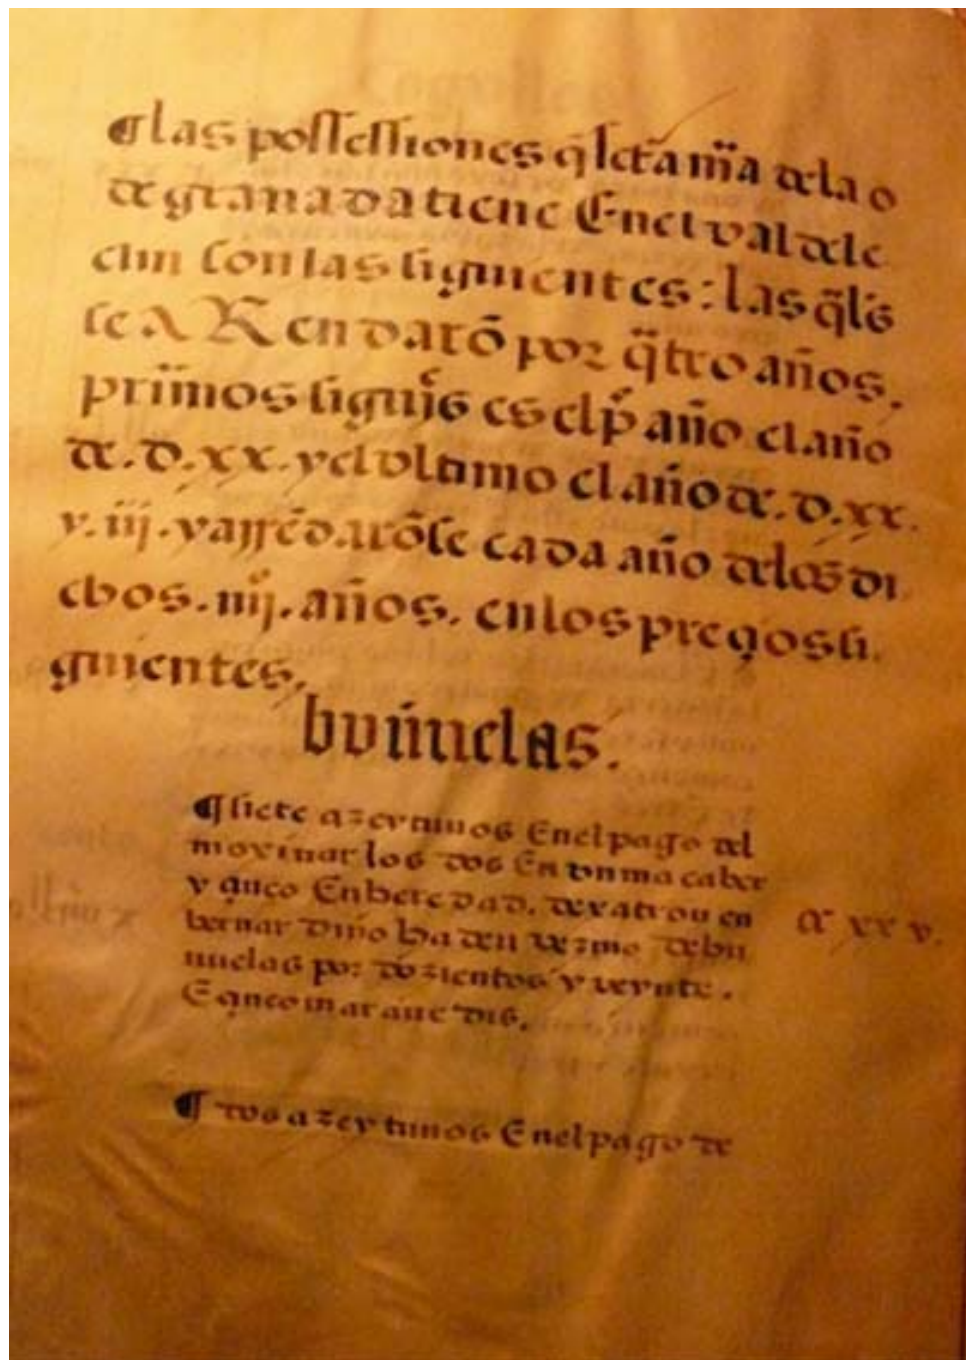 ¶ las possessiones q̃ sctã mãa dela o
de granada tiene Enel val dele
crin son las siguientes: las q̃les
se ARendarõ por q̃tro años.
primos siguiẽs es el p̃ año el año
de .D.xx. y el vltimo el año de .D.xx.
v.iij. y arrẽdarõse cada año delos di
chos .iiij. años. en los preçios si
guientes.
buñuelas.
¶ siete azeytunos Enel pago del
los dos En vn macaber
y çinco En heredad.
vezino de bu
nuelas por dozientos y veynte.
E çinco maraue dis.
cc xx v.
¶ dos azeytunos Enel pago de